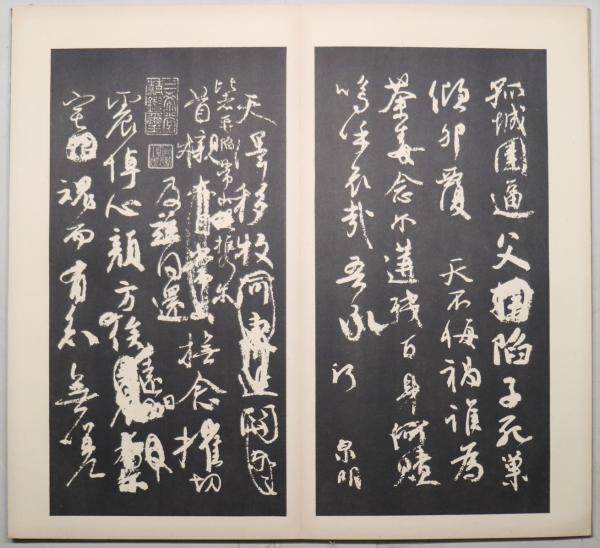 孤城圍逼父陷子死巢
傾卵覆 天不悔禍誰為
荼毒念尔遘殘百身何贖
嗚呼哀哉吾承
泉明
天澤移牧河關
比者再陷常山携尔
首櫬及茲同還撫念摧切
震悼心顏方俟遠日
宅魂而有知無嗟